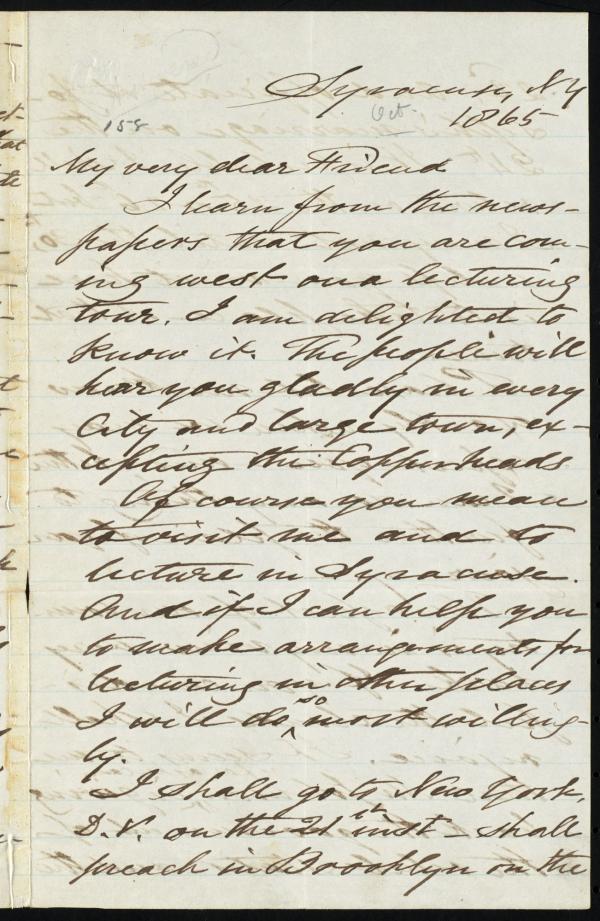 Syracuse, N.Y
Oct. 1865
158
My very dear Friend
I learn from the news-
papers that you are com-
ing west on a lecturing
tour. I am delighted to
know it. The people will
hear you gladly in every
City and large town, ex-
cepting the Copperheads
Of course you mean
to visit me and to
lecture in Syracuse.
And if I can help you
to make arrangements for
lecturing in other places
I will do so most willing-
ly.
I shall go to New York,
D.V. on the 21st inst - shall
preach in Brooklyn on the